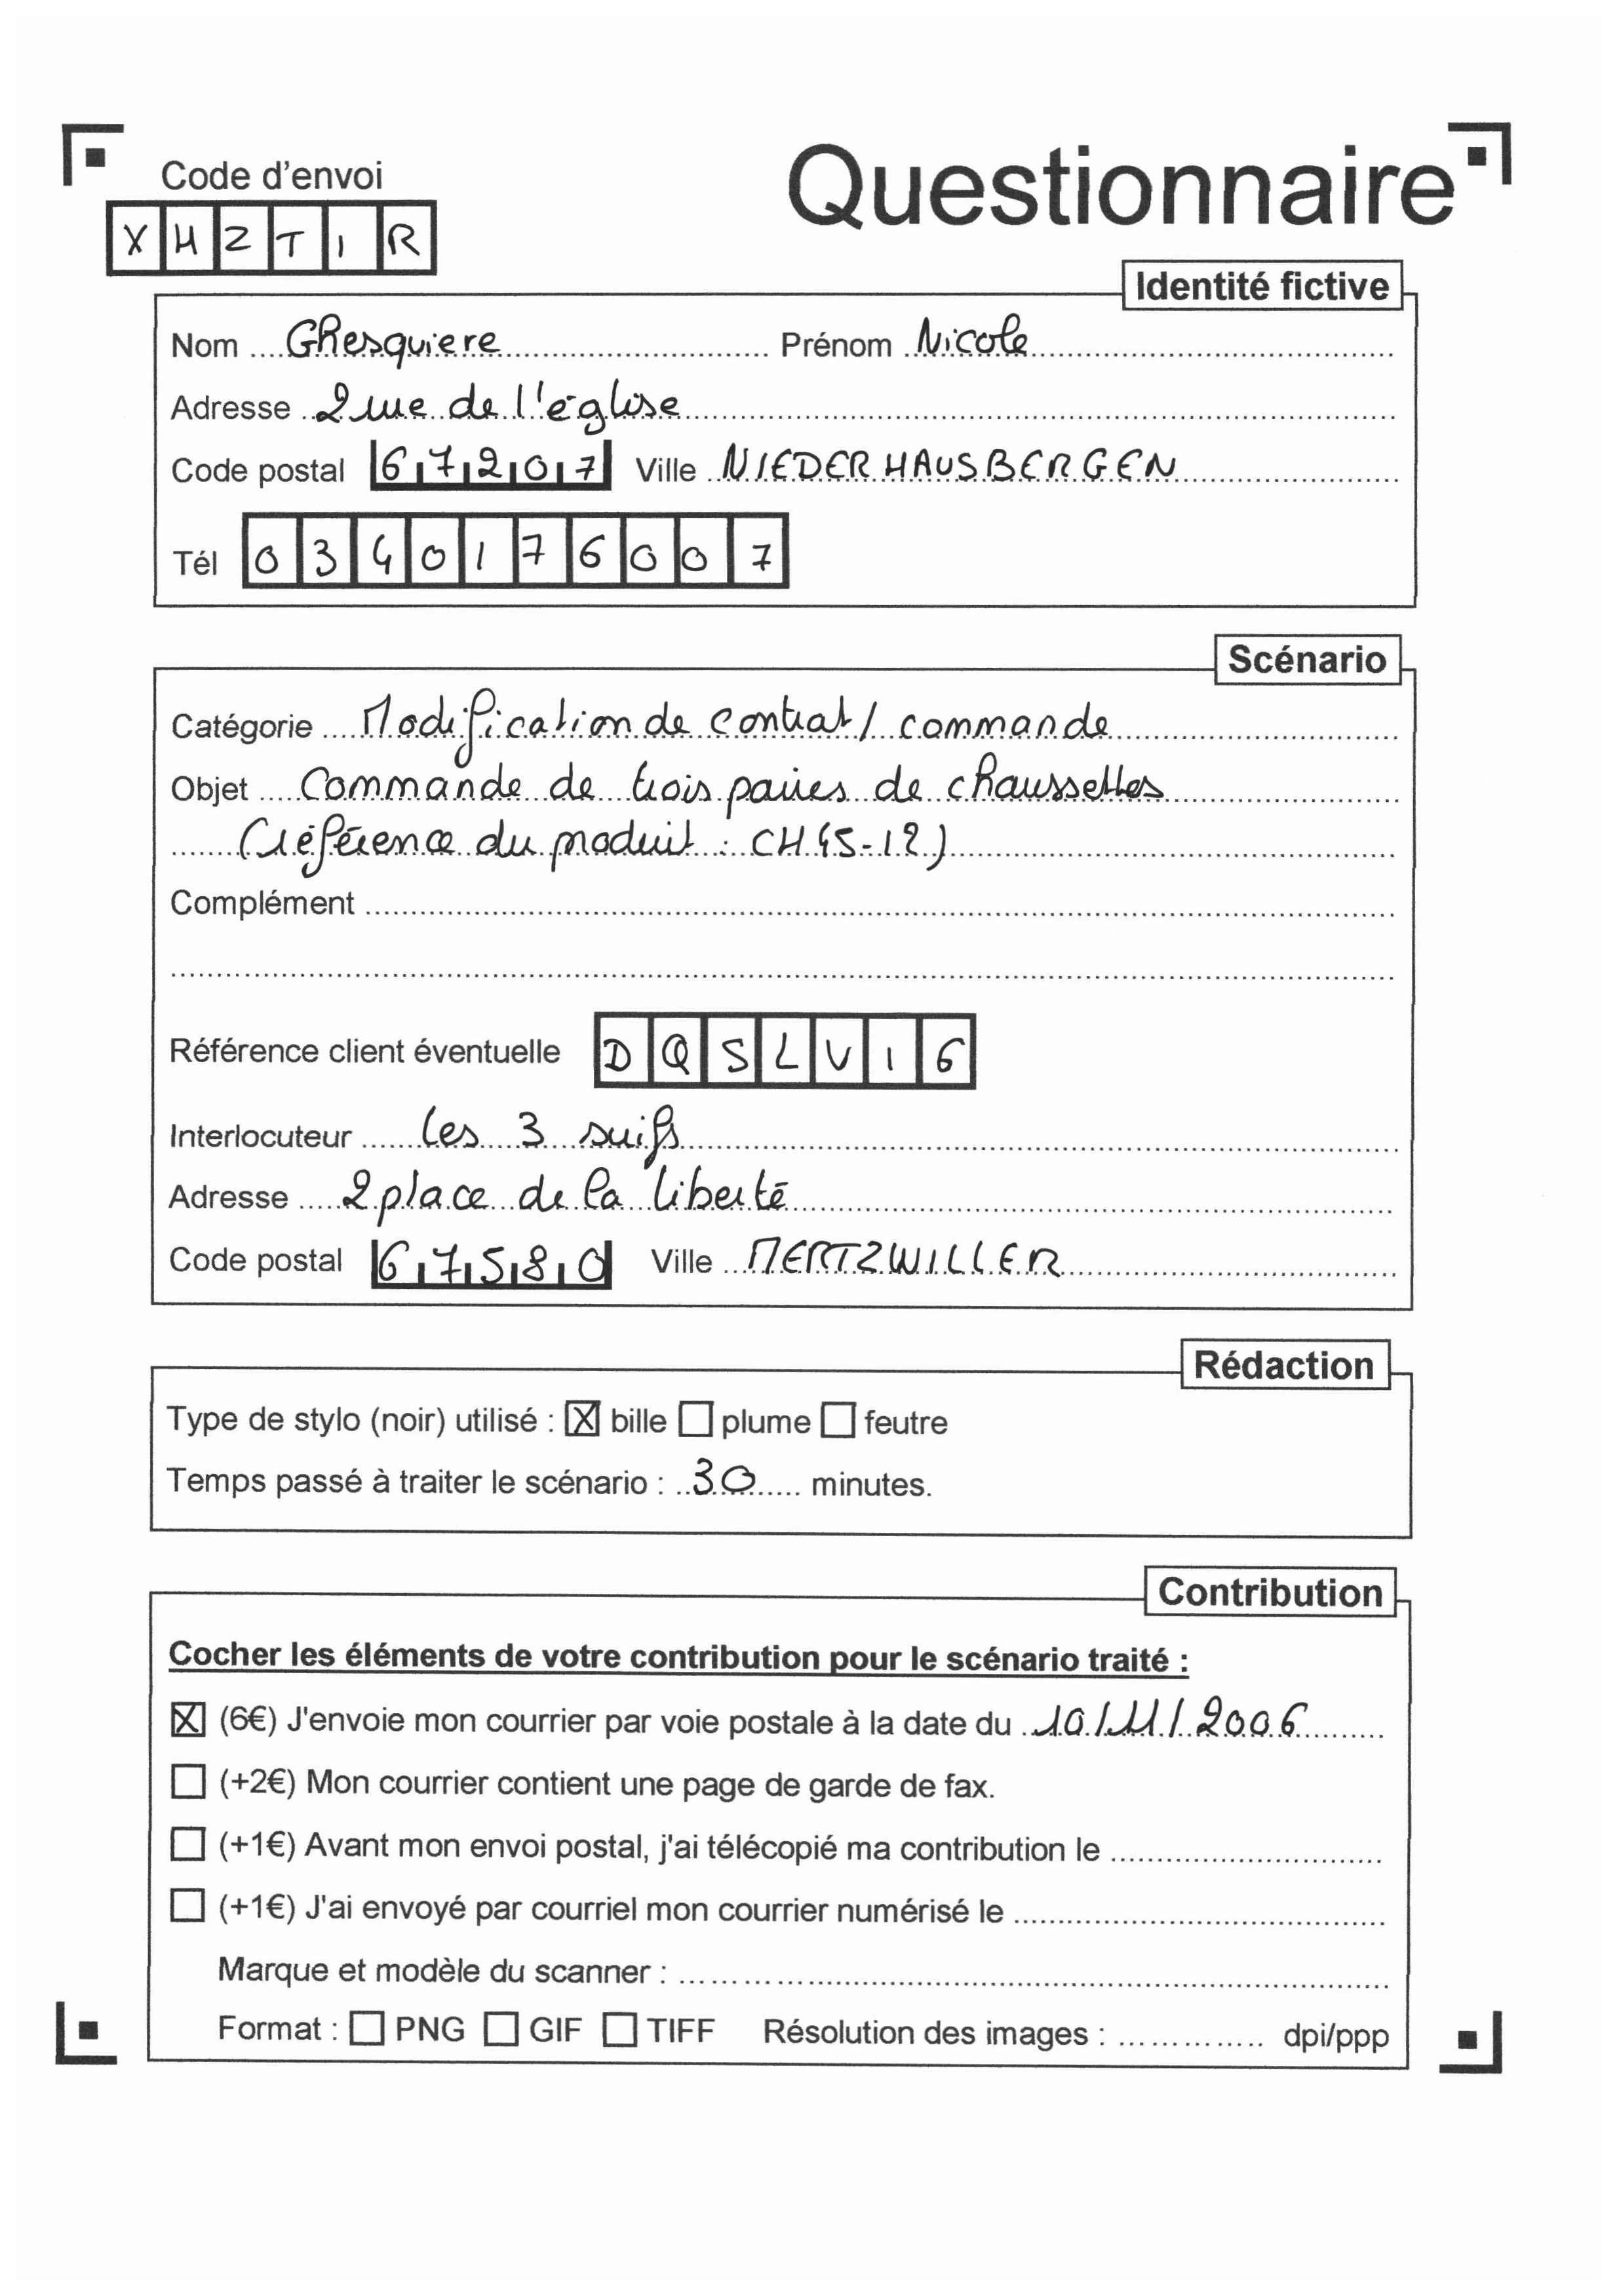 Code d'envoi
Questionnaire
X H Z T I R
Identité fictive
Nom Ghesquiere Prénom Nicole
Adresse 2 rue de l'église
Code postal 67207 Ville NIEDERHAUSBERGEN
Tél 0340176007
Scénario
Catégorie Modification de contrat / commande
Objet Commande de trois paires de chaussettes
(référence du produit : CH45-12)
Complément
Référence client éventuelle DQSLV16
Interlocuteur Les 3 suifs
Adresse 2 place de la liberté
Code postal 67580 Ville MERTZWILLER
Rédaction
Type de stylo (noir) utilisé : ☒ bille ☐ plume ☐ feutre
Temps passé à traiter le scénario : 30 minutes.
Contribution
Cocher les éléments de votre contribution pour le scénario traité :
☒ (6€) J'envoie mon courrier par voie postale à la date du 10/11/2006
☐ (+2€) Mon courrier contient une page de garde de fax.
☐ (+1€) Avant mon envoi postal, j'ai télécopié ma contribution le
☐ (+1€) J'ai envoyé par courriel mon courrier numérisé le
Marque et modèle du scanner :
Format : ☐ PNG ☐ GIF ☐ TIFF Résolution des images : dpi/ppp